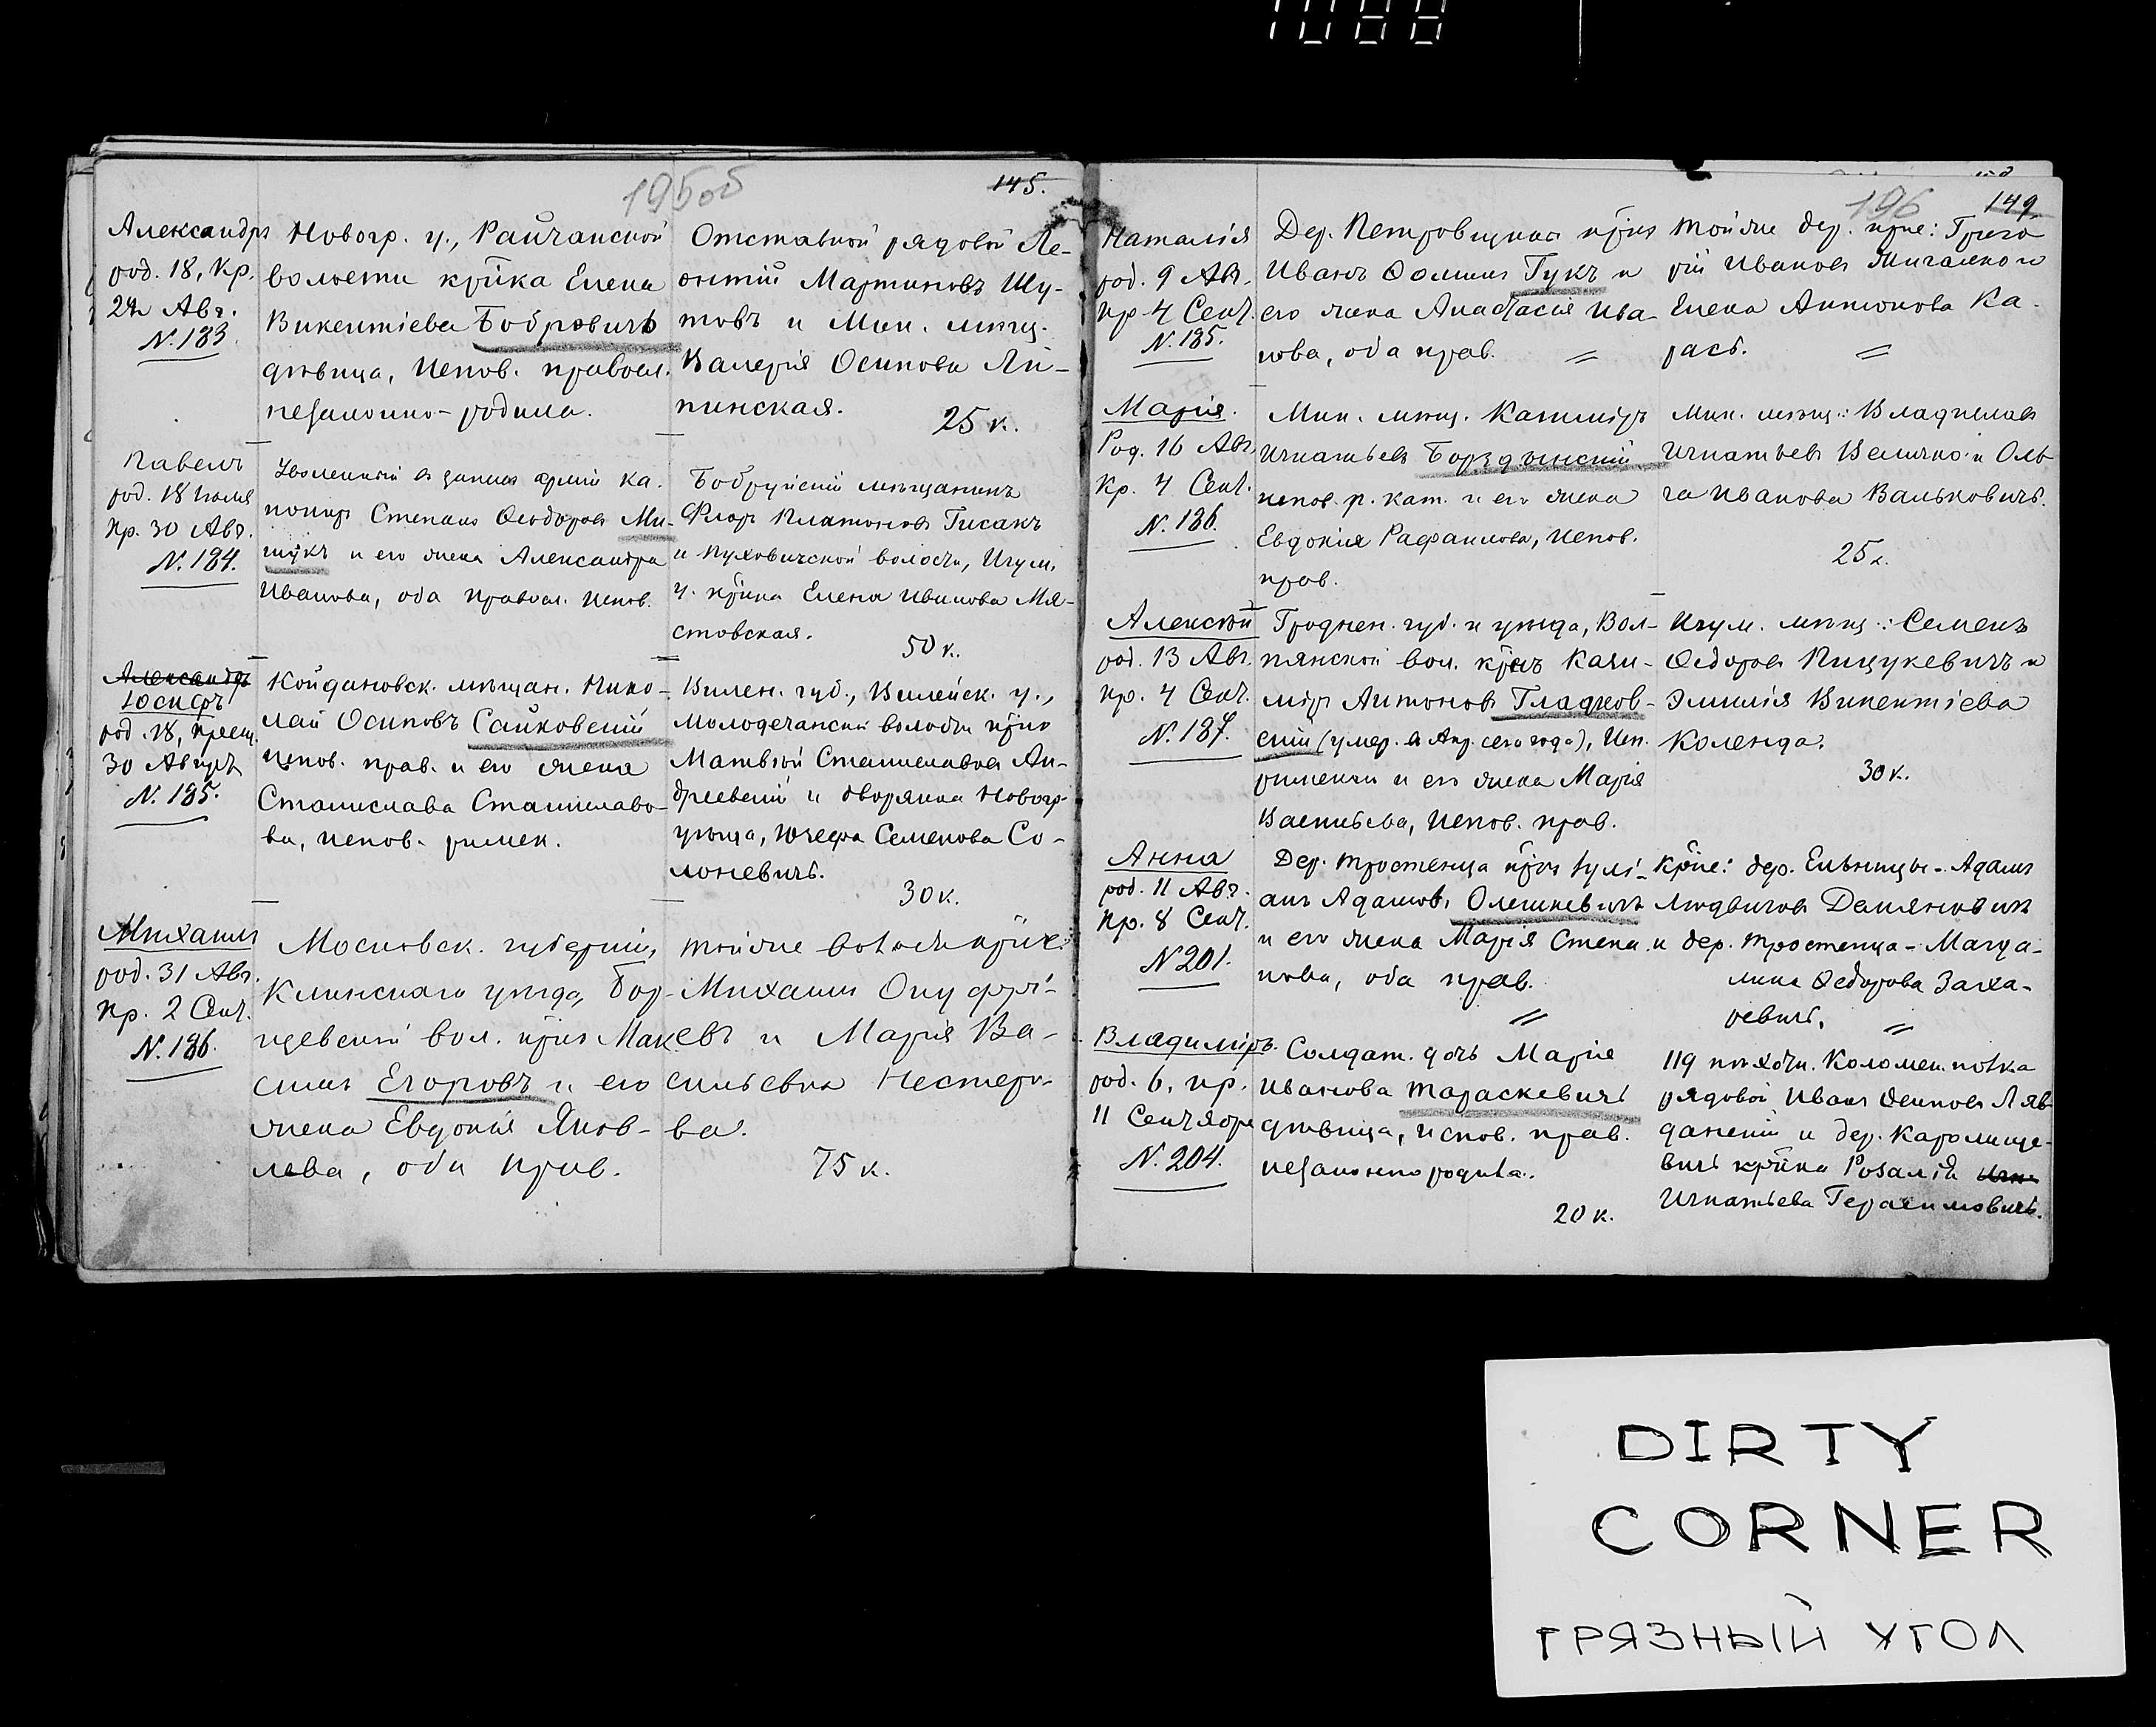 1088
195об
145.
Александръ
род. 18, Кр.
24 Авг.
N. 183.
Новогр. у., Райчанской
волости кр-ка Елена
Викентіева Бобровичъ
дѣвица, испов. правосл.
незаконно-родила.
Отставной рядовой Ле-
онтій Мартиновъ Шу-
товъ и Мин. мѣщ.
Валерія Осипова Ли-
пинская.
25 к.
Павелъ
род. 18 Іюля
кр. 30 Авг.
N. 184.
Уволенный въ запасъ арміи ка-
пониръ Степанъ Ѳеодоровъ Ми-
щукъ и его жена Александра
Иванова, оба правосл. испов.
Бобруйскій мѣщанинъ
Флоръ Платоновъ Гисакъ
и Пуховичской волости, Игум.
у. кр-ка Елена Иванова Мя-
стовская.
50 к.
Александръ
Іосифъ
род. 18, крещ.
30 Августъ
N. 185.
Койдановск. мѣщан. Нико-
лай Осиповъ Сайковскій
испов. прав. и его жена
Станислава Станиславо-
ва, испов. римск.
Вилен. губ., Вилейск. у.,
Молодечанской волости кр-нъ
Матвѣй Станиславовъ Ан-
дреевскій и дворянка Новогр.
уѣзда, Юзефа Семенова Со-
лоневичъ.
30 к.
Михаилъ
род. 31 Авг.
кр. 2 Сент.
N. 186.
Московск. губерніи,
Клинскаго уѣзда, Бор-
щевской вол. кр-нъ Мак-
симъ Егоровъ и его
жена Евдокія Яков-
лева, оба прав.
тойже волости кр-не:
Михаилъ Онуфрі-
евъ и Марія Ва-
сильевна Нестеро-
ва.
75 к.
196
149.
Наталія
род. 9 Авг.
кр. 4 Сент.
N. 195.
Дер. Петровщина кр-нъ
Иванъ Ѳоминъ Гукъ и
его жена Анастасія Ива-
нова, оба прав. =
Тойже дер. кр-не: Григо
рій Ивановъ Жигалко и
Елена Антонова Ка-
рась. =
Марія.
Род. 16 Авг.
Кр. 4 Сент.
N. 196.
Мин. мѣщ. Казиміръ
Игнатьевъ Борздынскій
испов. р. кат. и его жена
Евдокія Рафаилова, испов.
прав.
Мин. мѣщ.: Владиславъ
Игнатьевъ Величко и Оль-
га Иванова Вальковичъ.
25 к.
Алексѣй
род. 13 Авг.
кр. 4 Сент.
N. 197.
Гроднен. губ. и уѣзда, Вол-
пянской вол. кр-нъ Кази-
міръ Антоновъ Гладков-
скій (умер. въ Апр. сего года), исп.
римской и его жена Марія
Васильева, испов. прав.
Игум. мѣщ.: Семенъ
Ѳедоровъ Пищукевичъ и
Эмилія Викентіева
Коленда.
30 к.
Анна
род. 11 Авг.
кр. 8 Сент.
N 201.
Дер. Тростенца кр-нъ Іулі-
анъ Адамовъ Олешкевичъ
и его жена Марія Степа-
нова, оба прав.
=
Кр-не: дер. Ельницы - Адамъ
Людвиговъ Демяновичъ
и дер. Тростенца - Магда-
лина Ѳедорова Заха-
ревичъ. =
Владиміръ.
род. 6, кр.
11 Сентября
N. 204.
Солдат. дочь Марія
Иванова Тараскевичъ
дѣвица, испов. прав.
незаконно родила.
20 к.
119 пѣхотн. Коломен. полка
рядовой Иванъ Осиповъ Ляв-
данскій и дер. Каролище-
вичъ кр-ка Розалія Игн-
Игнатьева Герасимовичъ.
DIRTY
CORNER
ГРЯЗНЫЙ УГОЛ